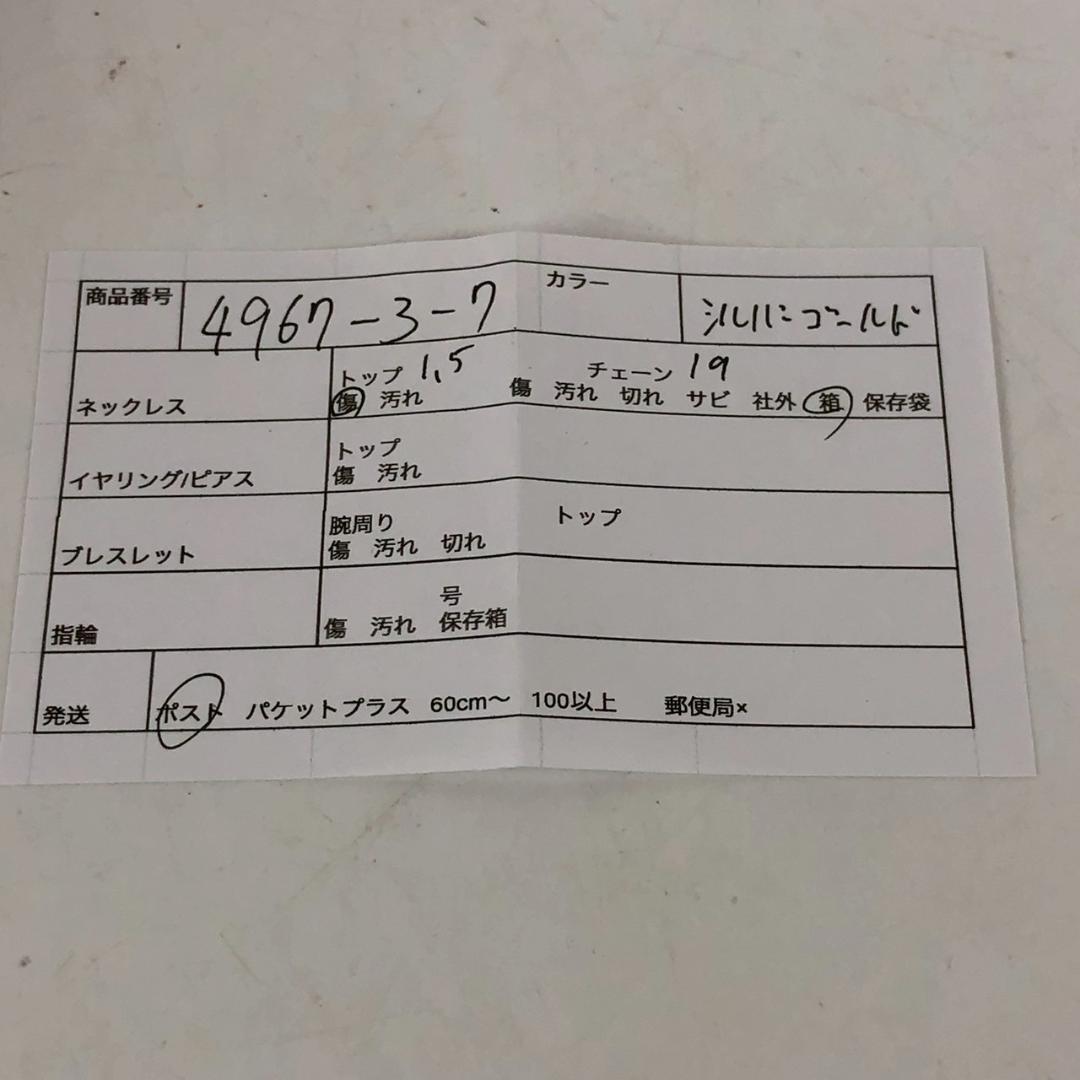 商品番号 4967-3-7 カラー シルバーゴールド
トップ 1,5 チェーン 19
ネックレス 傷 汚れ 傷 汚れ 切れ サビ 社外 箱 保存袋
トップ
イヤリング/ピアス 傷 汚れ
腕周り トップ
ブレスレット 傷 汚れ 切れ
号
指輪 傷 汚れ 保存箱
発送 ポスト パケットプラス 60cm〜 100以上 郵便局×